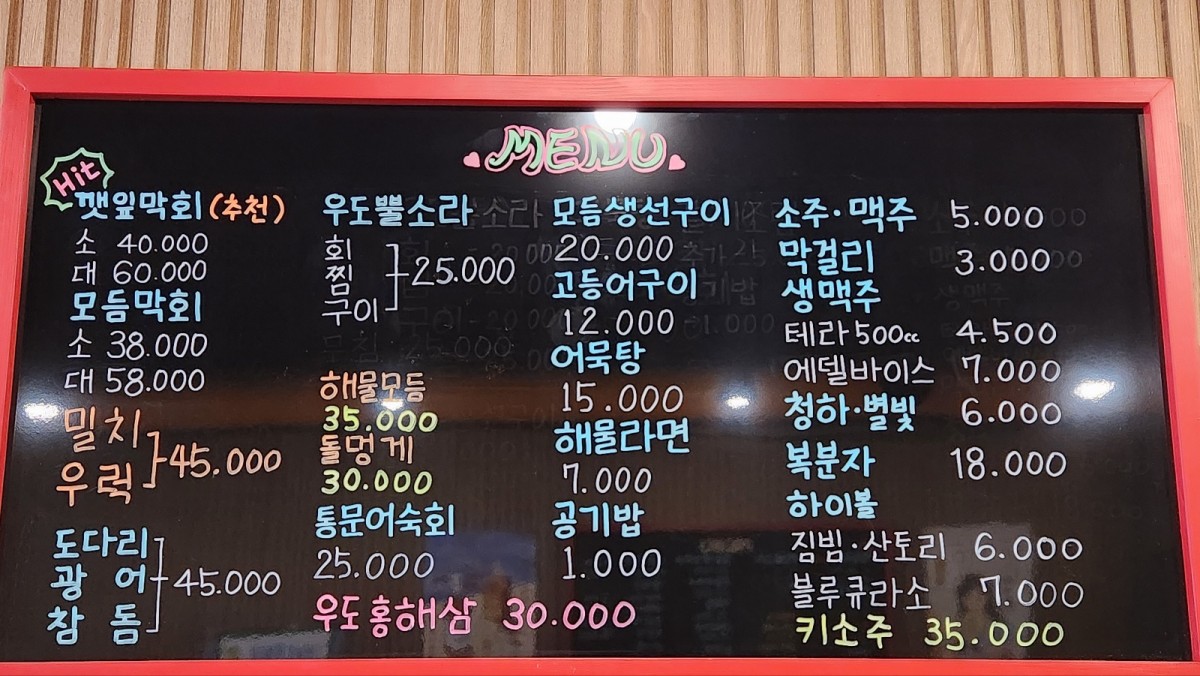 MENU
Hit
깻잎막회 (추천)
소 40.000
대 60.000
모듬막회
소 38.000
대 58.000
밀치
우럭
45.000
도다리
광어
참돔
45.000
우도뿔소라
회
찜
구이
25.000
해물모듬
35.000
돌멍게
30.000
통문어숙회
25.000
우도홍해삼 30.000
모듬생선구이
20.000
고등어구이
12.000
어묵탕
15.000
해물라면
7.000
공기밥
1.000
소주·맥주 5.000
막걸리 3.000
생맥주
테라 500cc 4.500
에델바이스 7.000
청하·별빛 6.000
복분자 18.000
하이볼
짐빔·산토리 6.000
블루큐라소 7.000
키소주 35.000